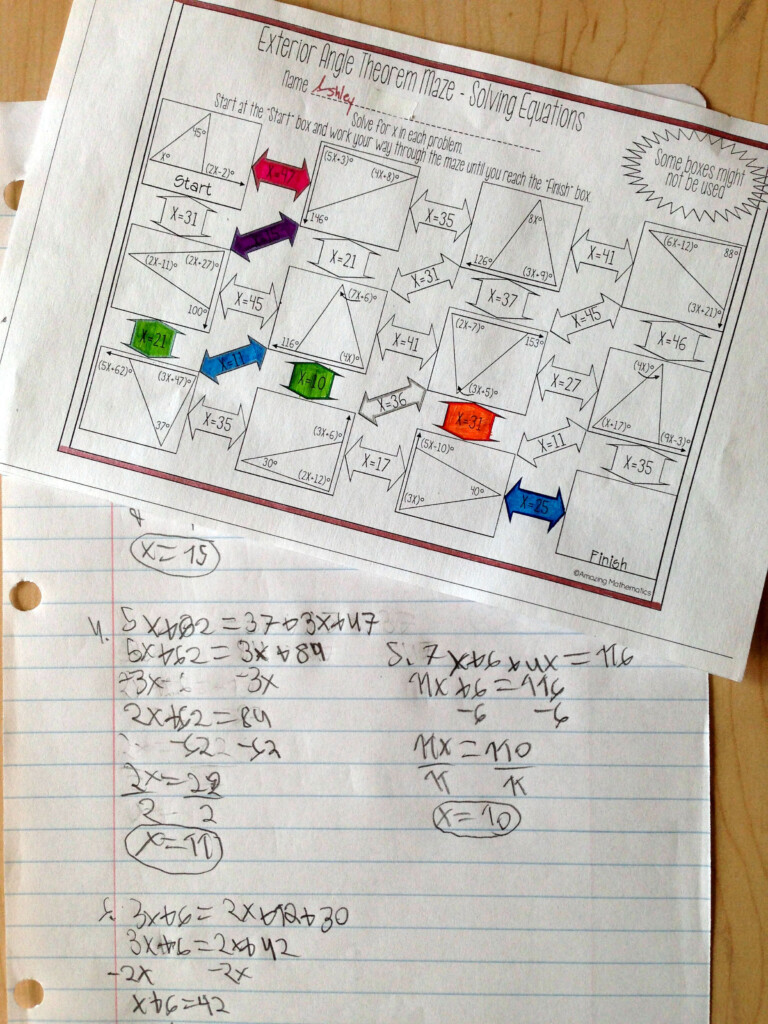 Exterior Angle Theorem Maze - Solving Equations
Name Ashley
Solve for x in each problem.
Start at the "Start" box and work your way through the maze until you reach the "Finish" box
Some boxes might
not be used
45°
x°
(2x-2)°
Start
X=47
(5x+3)°
(4x+8)°
146°
X=35
8x°
126°
(3x+9)°
X=41
(6x-12)°
88°
(3x+21)°
X=31
X=21
X=31
X=37
X=45
X=46
(2x-11)°
(2x+27)°
100°
X=45
(7x+6)°
116°
(4x)°
X=41
(2x-7)°
153°
(3x+5)°
X=27
(4x)°
(x+17)°
(9x-3)°
X=21
X=11
X=10
X=36
X=31
X=11
X=35
(5x+62)°
(3x+47)°
37°
X=35
(3x+6)°
30°
(2x+12)°
X=17
(5x-10)°
40°
(3x)°
X=25
Finish
©Amazing Mathematics
x=15
4. 5x+62=37+3x+47
5x+62=3x+84
-3x -3x
2x+62=84
-62 -62
2x=22
2 2
x=11
5. 7x+6+4x=116
11x+6=116
-6 -6
11x=110
11 11
x=10
3x+6=2x+12+30
3x+6=2x+42
-2x -2x
x+6=42